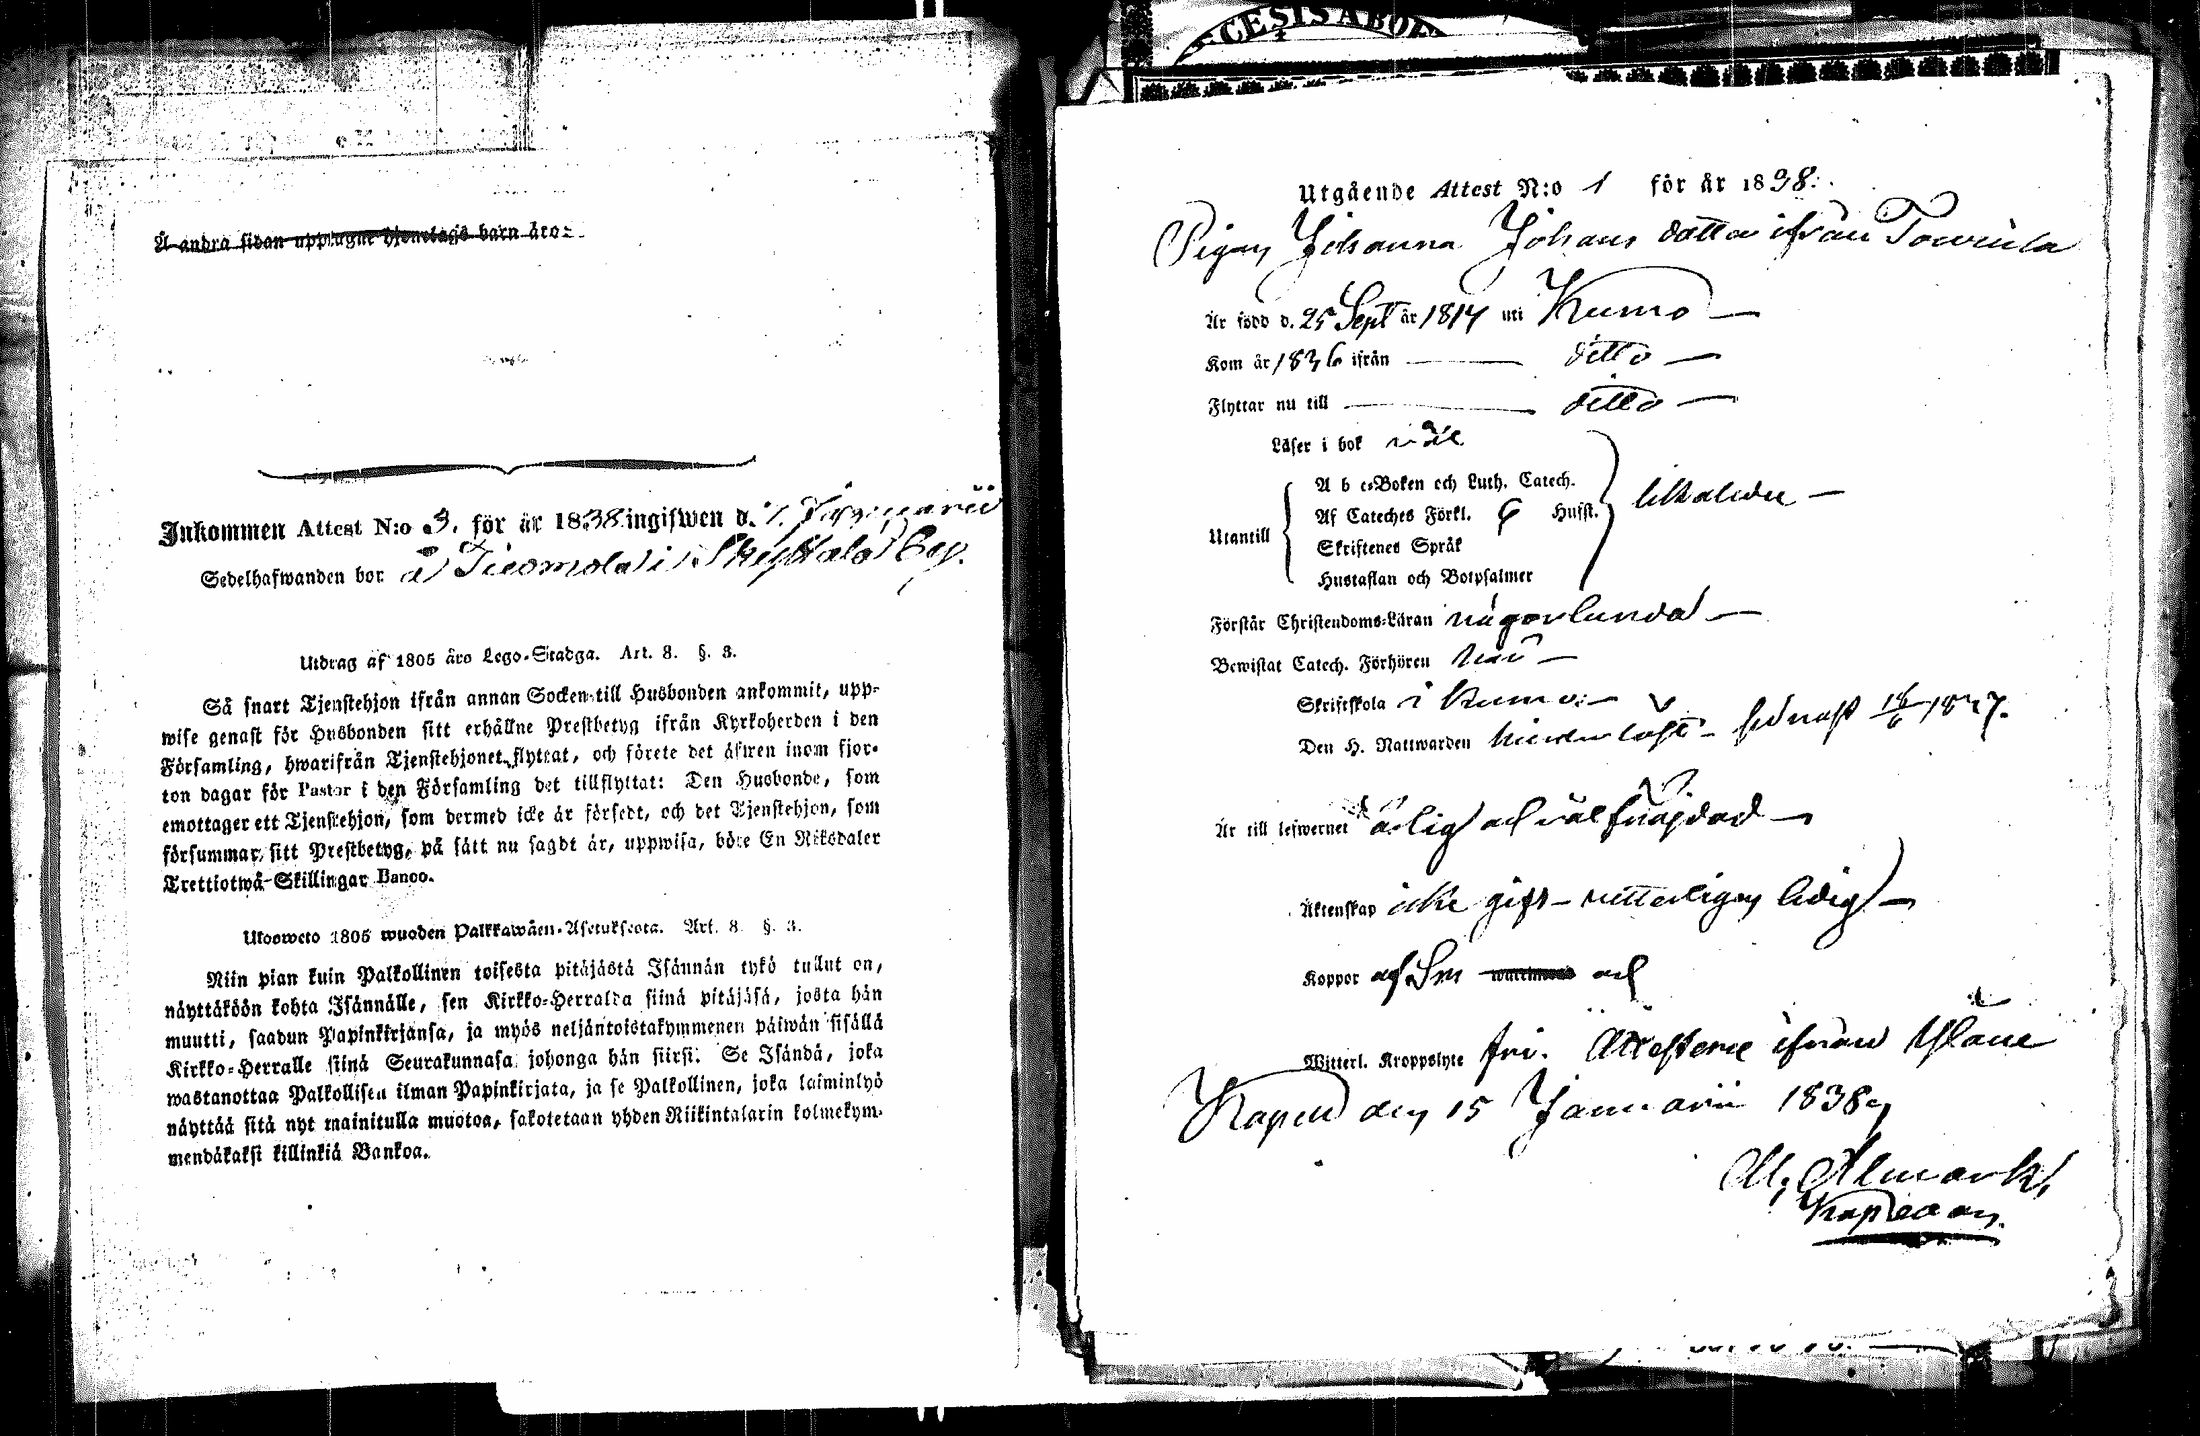 Å andra sidan upptagne hjonelags barn äro:
Inkommen Attest N:o 3. för år 1838 ingifwen d. Januarii
Sedelhafwanden bor å i
Utdrag af 1805 års Lego-Stadga. Art. 8. §. 3.
Så snart Tjenstehjon ifrån annan Socken till Husbonden ankommit, upp-
wise genast för Husbonden sitt erhållne Prestbetyg ifrån Kyrkoherden i den
Församling, hwarifrån Tjenstehjonet flyttat, och förete det äfwen inom fjor-
ton dagar för Pastor i den Församling det tillflyttat: Den Husbonde, som
emottager ett Tjenstehjon, som dermed icke är försedt, och det Tjenstehjon, som
försummar sitt Prestbetyg, på sätt nu sagdt är, uppwisa, böte En Riksdaler
Trettiotwå Skillingar Banco.
Ulosweto 1805 wuoden Palkkawäen-Asetuksesta. Art. 8 §. 3.
Niin pian kuin Palkollinen toisesta pitäjästä Isännän tykö tullut on,
näyttäköön kohta Isännälle, sen Kirkko-Herralda siinä pitäjäsä, josta hän
muutti, saadun Papinkirjansa, ja myös neljäntoistakymmenen päiwän sisällä
Kirkko-Herralle siinä Seurakunnasa johonga hän siirsi: Se Isändä, joka
wastanottaa Palkollisen ilman Papinkirjata, ja se Palkollinen, joka laiminlyö
näyttää sitä nyt mainitulla muotoa, sakotetaan yhden Riikintalarin kolmekym-
mendäkaksi killinkiä Bankoa.
CESIS ABOE
Utgående Attest N:o 1 för år 1838.
Pigan Johanna Johans dotter ifrån Tourula
Är född d. 25 Sept år 1814 uti Kumo
Kom år 1836 ifrån ditto
Flyttar nu till ditto
Läser i bok wäl
Utantill
A b c-Boken och Luth. Catech.
Af Cateches Förkl. 6 Hufst. likaledes
Skriftenes Språk
Hustaflan och Botpsalmer
Förstår Christendoms-Läran någorlunda
Bewistat Catech. Förhören
Skriftskola i Kumo
Den H. Nattwarden sednast 18/6 1837.
Är till lefwernet ärlig och wäl frägdad
Äktenskap icke gift - witterligen ledig
Koppor af Sm och
Witterl. Kroppslyte fri. Attesterar ifrån Yläne
Kapell den 15 Januarii 1838
Almark,
Kapellan.